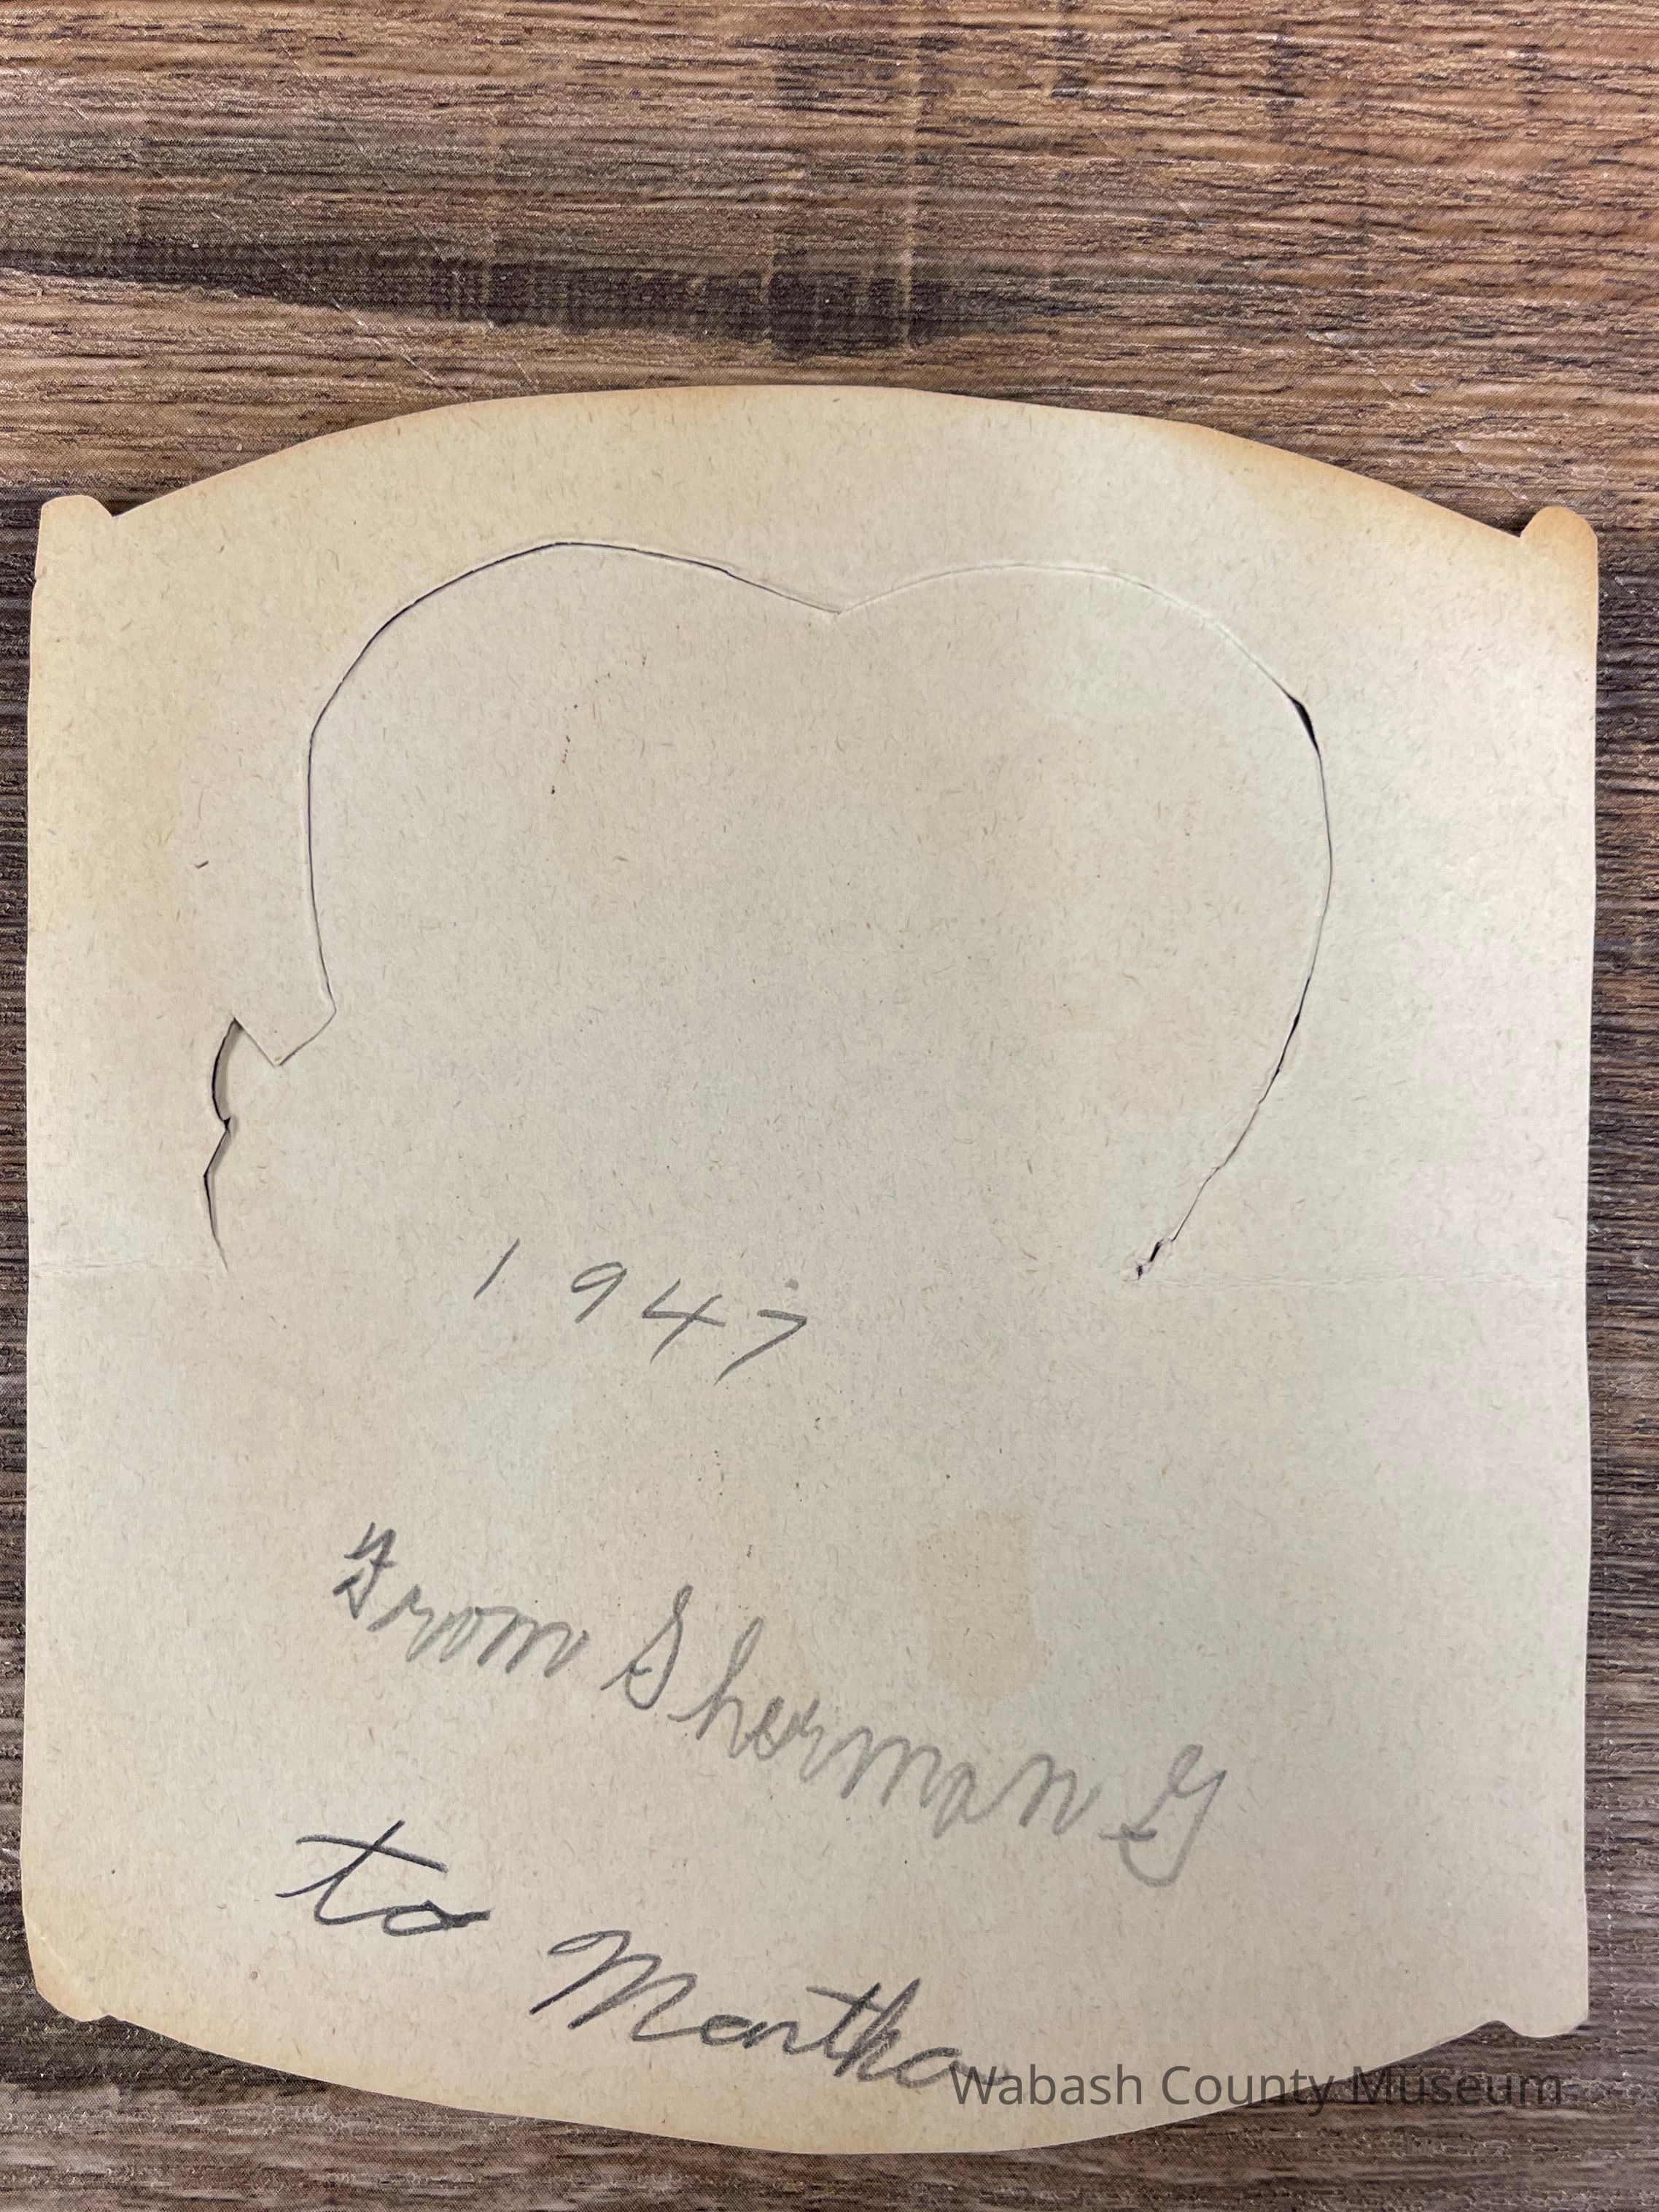 1947
From Sherman G
to Martha
Wabash County Museum